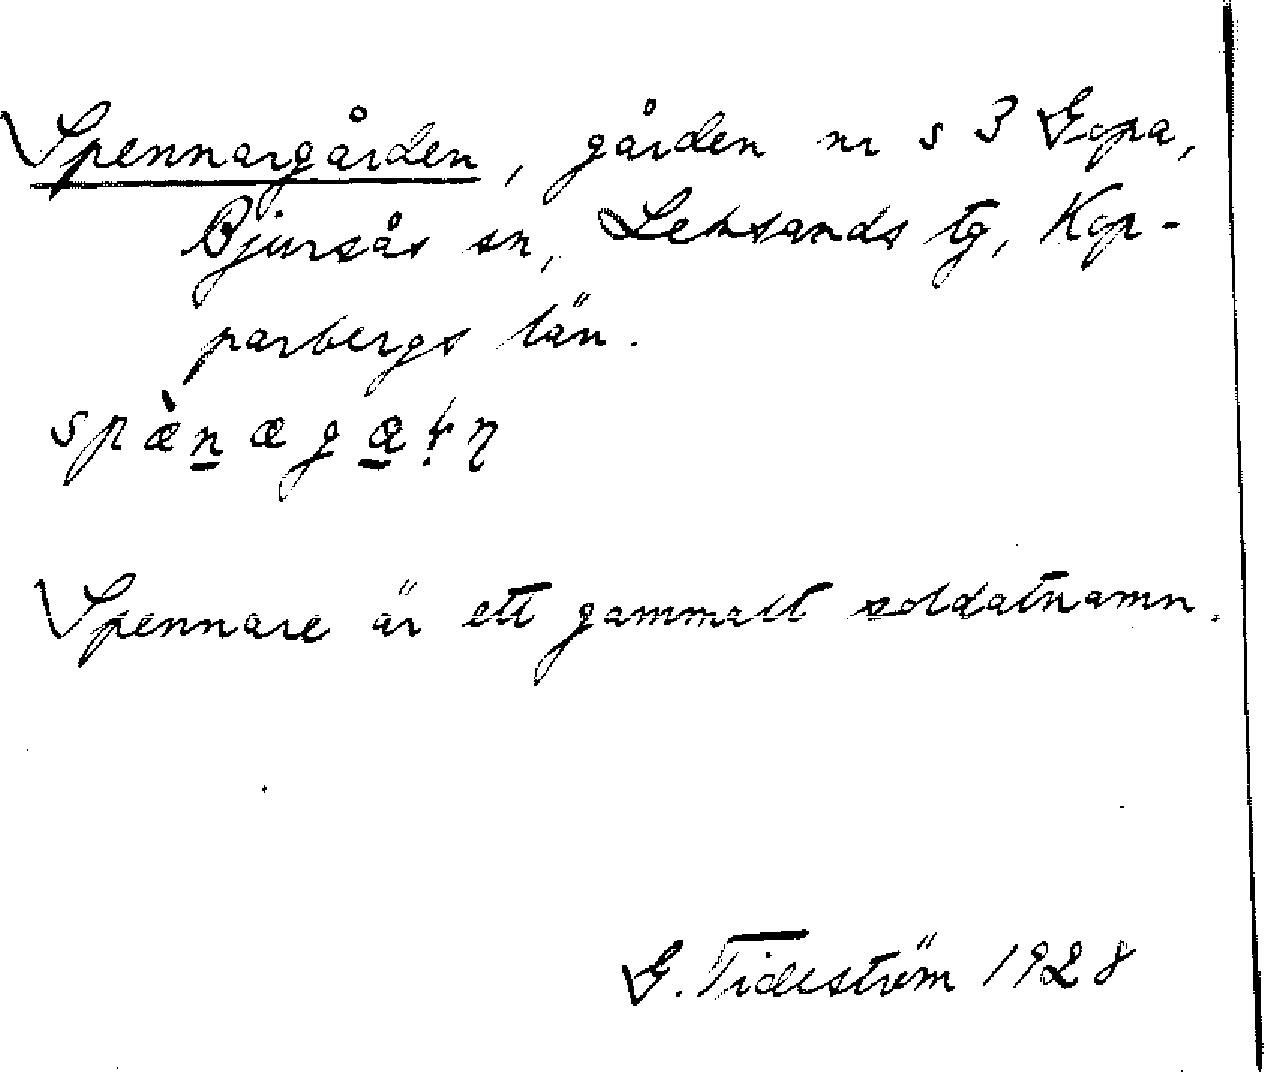 Spennargården, gården nr s 3 Gopa,
Bjursås sn, Leksands tg, Kop-
parbergs län.
Spennare är ett gammalt soldatnamn.
G. Tideström 1928